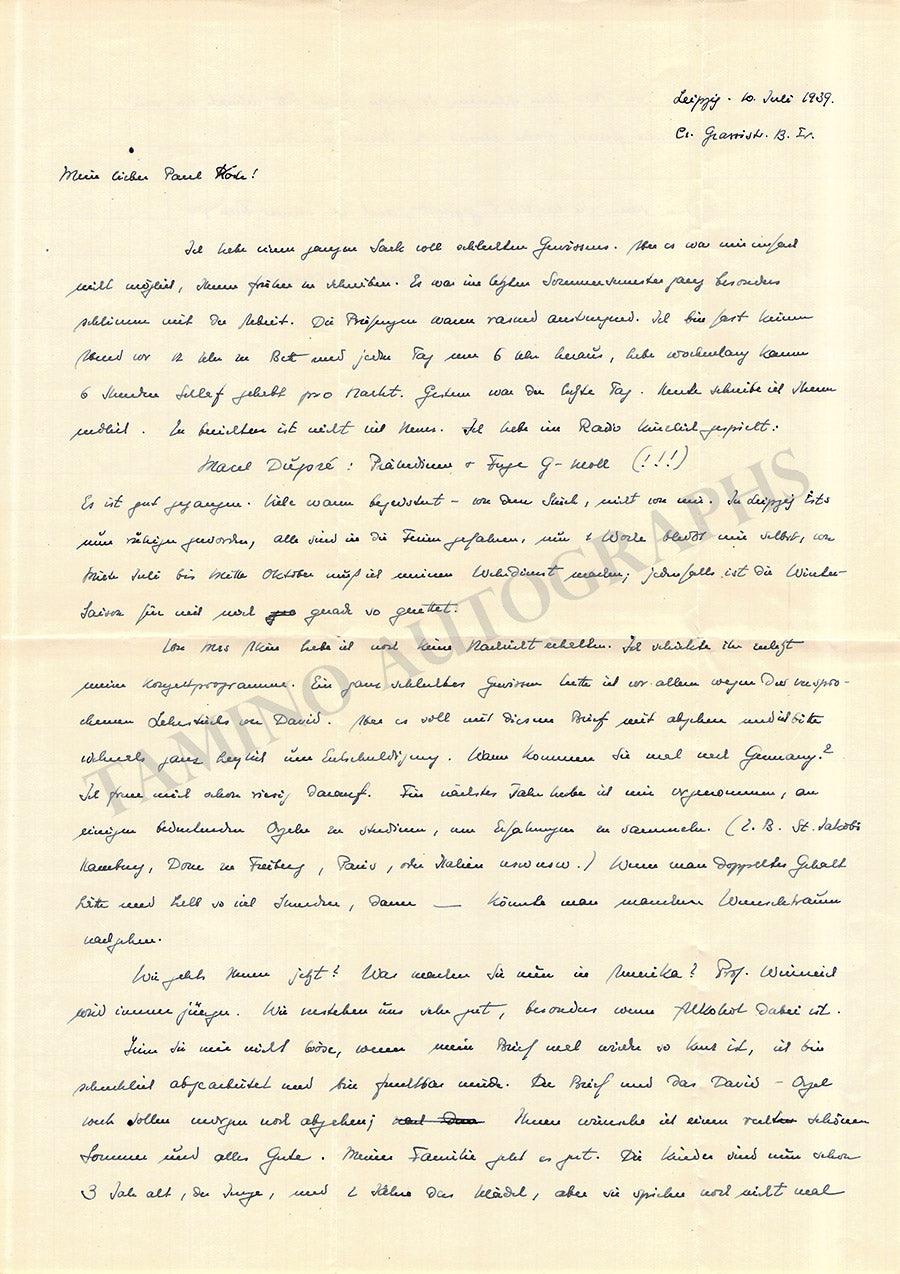 Leipzig - 10. Juli 1939.
C1. Grassistr. 13. II.
Mein lieber Paul Koch!
Ich habe einen ganzen Sack voll schlechten Gewissens. Aber es war mir einfach
nicht möglich, Ihnen früher zu schreiben. Es war im letzten Sommersemester ganz besonders
schlimm mit der Arbeit. Die Prüfungen waren rasend anstrengend. Ich bin fast keinen
Abend vor 12 Uhr zu Bett und jeden Tag um 6 Uhr heraus, habe wochenlang kaum
6 Stunden Schlaf gehabt pro Nacht. Gestern war der letzte Tag. Heute schreibe ich Ihnen
endlich. Zu berichten ist nicht viel Neues. Ich habe im Radio kürzlich gespielt:
Marcel Düpré: Präludium & Fuge G-moll (!!!)
Es ist gut gegangen. Viele waren begeistert - von dem Stück, nicht von mir. In Leipzig ists
nun ruhiger geworden, alle sind in die Ferien gefahren, nur 1 Woche bleibt mir selbst, von
Mitte Juli bis Mitte Oktober muß ich meinen Wehrdienst machen; jedenfalls ist die Winter-
Saison für mich noch gerade so gerettet.
Von Mrs habe ich noch keine Nachricht erhalten. Ich schickte ihr zuletzt
meine Konzertprogramme. Ein ganz schlechtes Gewissen hatte ich vor allem wegen des verspro-
chenen Lehrstücks von David. Aber es soll mit diesem Brief mit abgehen und ich bitte
vielmals ganz herzlich um Entschuldigung. Wann kommen Sie mal nach Germany?
Ich freue mich schon riesig darauf. Für nächstes Jahr habe ich mir vorgenommen, an
einigen bedeutenden Orgeln zu studieren, um Erfahrungen zu sammeln. (Z. B. St. Jakobi
Hamburg, Dom zu Freiberg, Paris, oder Italien usw usw.) Wenn man doppeltes Gehalt
hätte und halb so viel Stunden, dann — könnte man manchem Wunschtraum
nachgehen.
Wie gehts Ihnen jetzt? Was machen Sie nun in Amerika? Prof. Winreich
wird immer jünger. Wir verstehen uns sehr gut, besonders wenn Alkohol dabei ist.
Seien Sie mir nicht böse, wenn mein Brief mal wieder so kurz ist, ich bin
schrecklich abgearbeitet und bin furchtbar müde. Der Brief und das David - Orgel
werk sollen morgen noch abgehen; Ihnen wünsche ich einen recht schönen
Sommer und alles Gute. Meiner Familie geht es gut. Die Kinder sind nun schon
3 Jahr alt, der Junge, und 2 Jahre das Mädel, aber sie sprechen noch nicht mal
TAMINO AUTOGRAPHS